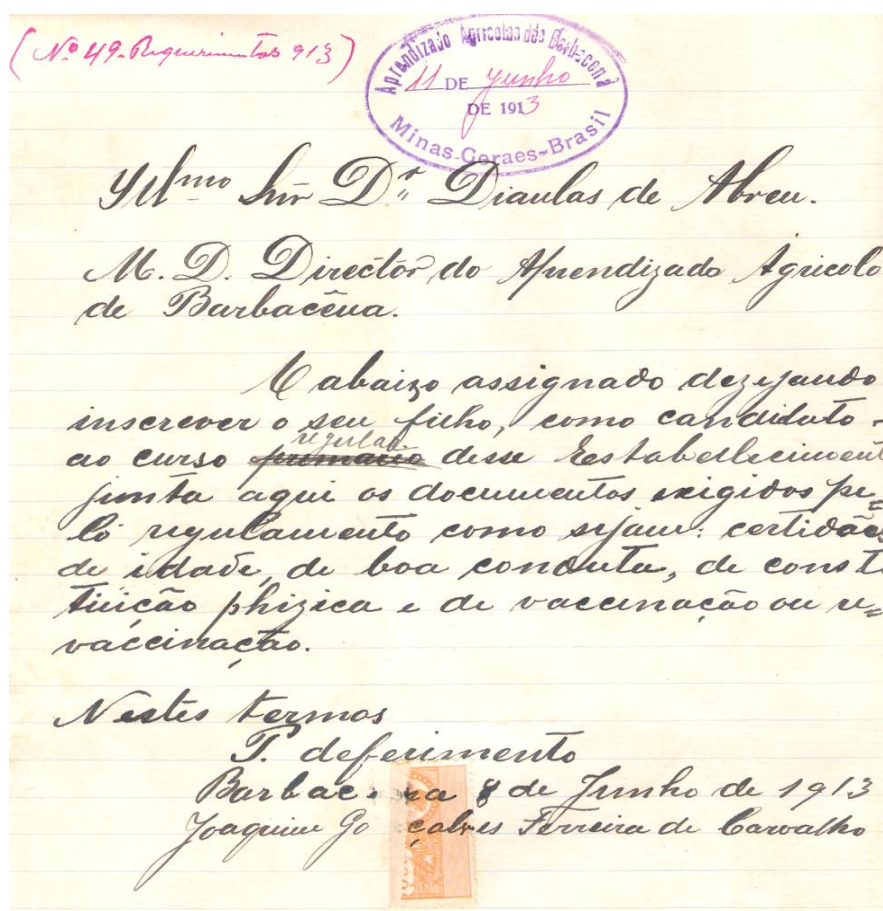 (Nº 49-Requerimentos 913)
Aprendizado Agricola de Barbacena
11 DE Junho
DE 1913
Minas-Geraes-Brasil
Illmo Snr Dr Diaulas de Abreu.
M. D. Director do Aprendizado Agricolo
de Barbacêna.
O abaixo assignado dezejando
inscrever o seu filho, como candidato
regular
ao curso primario desse Estabellecimento
junta aqui os documentos exigidos pe=
lo regulamento como sejam: certidões
de idade, de boa conduta, de consti
tuição phizica e de vaccinação ou re=
vaccinação.
Nestes termos
P. deferimento
Barbacena 8 de Junho de 1913
Joaquim Gonçalves Ferreira de Carvalho